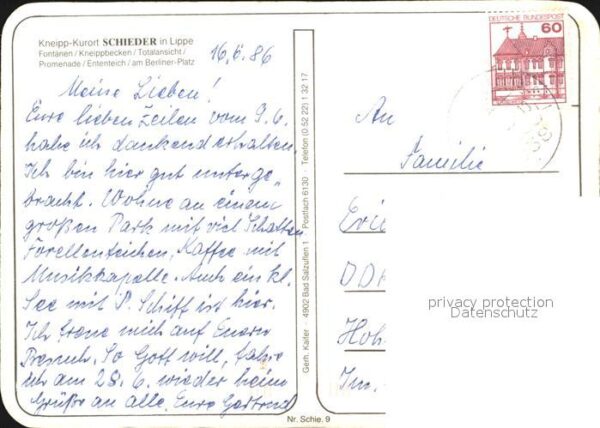 Kneipp-Kurort SCHIEDER in Lippe
Fontänen / Kneippbecken / Totalansicht /
Promenade / Ententeich / am Berliner-Platz
16.6.86
Meine Lieben!
Eure lieben Zeilen vom 9.6.
habe ich dankend erhalten.
Ich bin hier gut unterge-
bracht. Wohne an einem
großen Park mit viel Schatten
Forellenteichen, Kaffee mit
Musikkapelle. Auch ein kl.
See mit P. Schiff ist hier.
Ich freue mich auf Euern
Besuch. So Gott will, fahre
ich am 28.6. wieder heim
Grüße an alle, Eure Gertrud
Nr. Schie. 9
Gerh. Kaller · 4902 Bad Salzuflen 1 · Postfach 6130 · Telefon (0 52 22) 1 32 17
DEUTSCHE BUNDESPOST
60
An
Familie
DD
Hoh
Im
privacy protection
Datenschutz